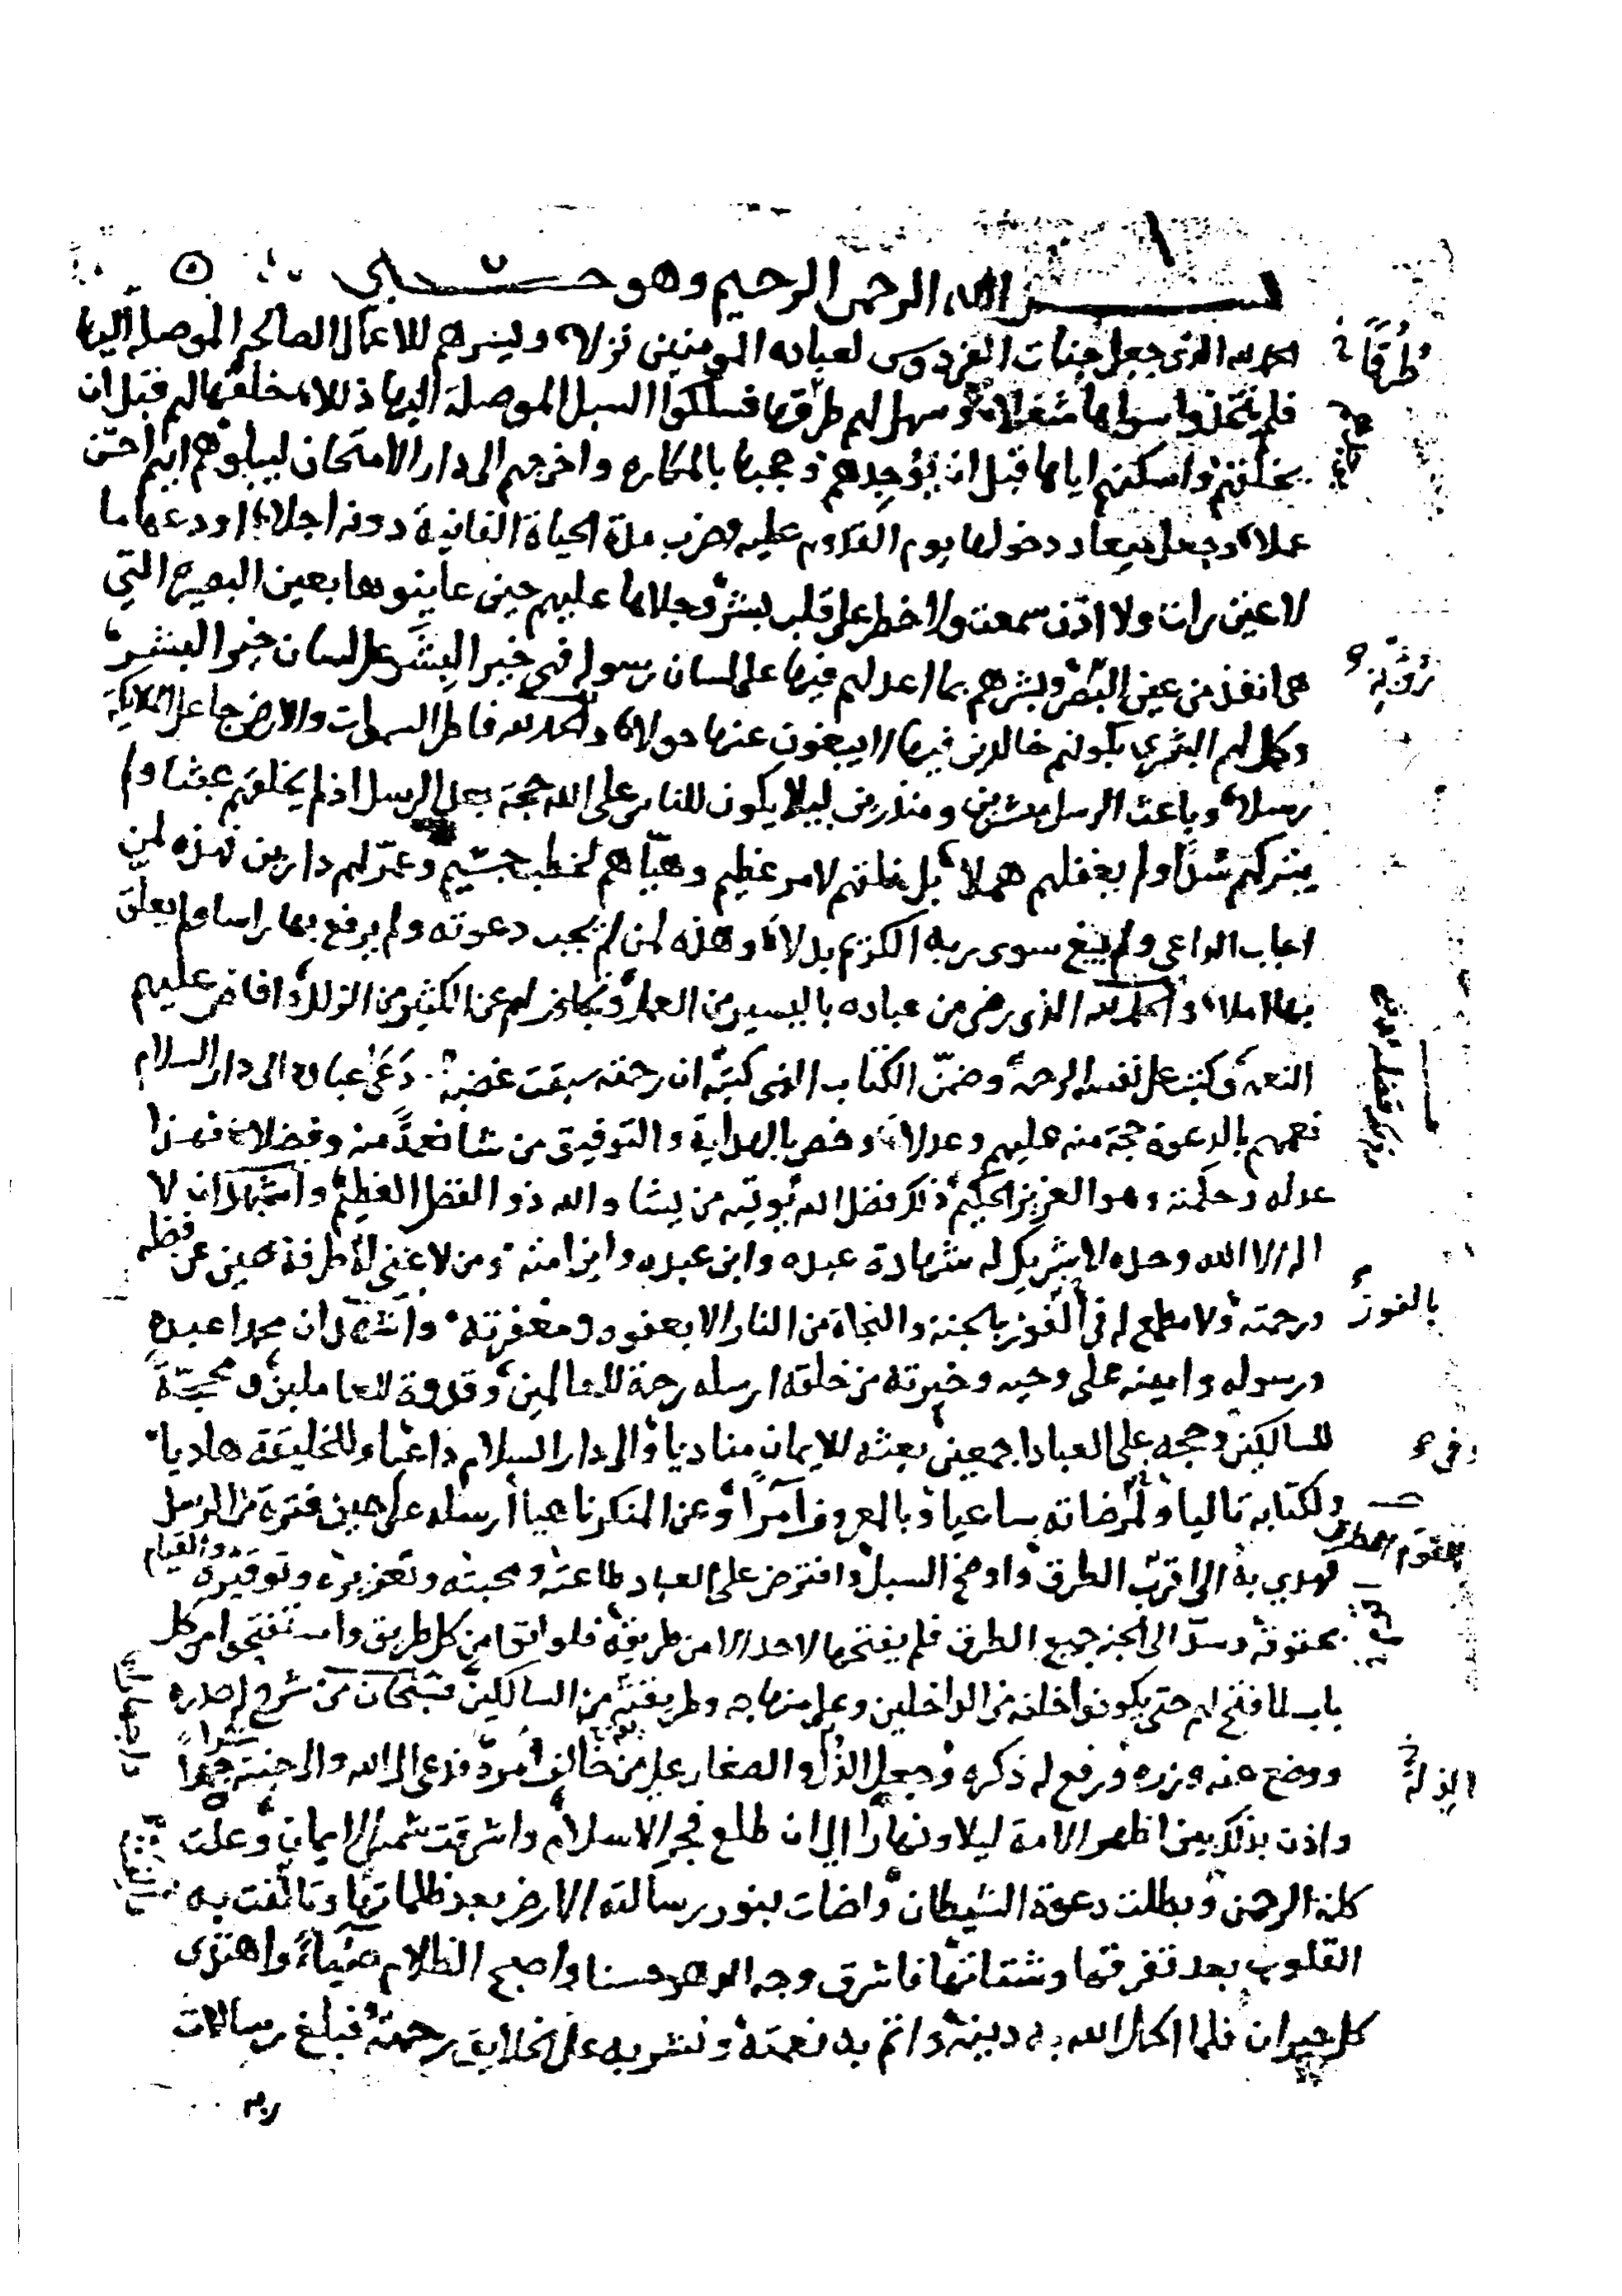 بسم الله الرحمن الرحيم وهو حسبي
الحمد لله الذي جعل جنات الفردوس لعباده المومنين نزلا ويسرهم للاعمال الصالحة الموصلة اليها
فلم يتخذوا سواها شغلا وسهل لهم طرقها فسلكوا السبل الموصلة اليها ذللا خلقها لهم قبل ان
يخلقهم واسكنهم اياها قبل ان يوجدهم وحجبها بالمكاره واخرجهم الى دار الامتحان ليبلوهم ايهم احسن
عملا وجعل ميعاد دخولها يوم القدوم عليه وضرب مدة الحياة الفانية دونه اجلا اودعها ما
لا عين رات ولا اذن سمعت ولا خطر على قلب بشر وجلاها عليهم حتى عاينوها بعين البصيرة التي
هي انفذ من عين البصر وبشرهم بما اعد لهم فيها على لسان رسوله فهي خير البشر على لسان خير البشر
وكمل لهم البشرى بكونهم خالدين فيها لا يبغون عنها حولا والحمد لله فاطر السموات والارض جاعل الملائكة
رسلا وباعث الرسل مبشرين ومنذرين ليلا يكون للناس على الله حجة بعد الرسل اذ لم يخلقهم عبثا ولم
يتركهم سدا ولم يغفلهم هملا بل خلقهم لامر عظيم وهياهم لخطب جسيم وعمر لهم دارين فهذه لمن
اجاب الداعي ولم يبغ سوى ربه الكريم بدلا وهذه لمن لم يجب دعوته ولم يرفع بها راسا ولم يعلق
بها املا والحمد لله الذي رضي من عباده باليسير من العمل وتجاوز لهم عن الكثير من الزلل وافاض عليهم
النعمة وكتب على نفسه الرحمة وضمن الكتاب الذي كتبه ان رحمته سبقت غضبه دعى عباده الى دار السلام
فعمهم بالدعوة حجة منه عليهم وعدلا وخص بالهداية والتوفيق من شا نعمة منه وفضلا فهذا
عدله وحكمته وهو العزيز الحكيم وذلك فضل الله يوتيه من يشا والله ذو الفضل العظيم واشهد ان لا
اله الا الله وحده لا شريك له شهادة عبده وابن عبده وابن امته ومن لا غنى له طرفة عين عن فضله
ورحمته ولا مطمع له في الفوز بالجنة والنجاة من النار الا بعفوه ومغفرته واشهد ان محمدا عبده
ورسوله وامينه على وحيه وخيرته من خلقه ارسله رحمة للعالمين وقدوة للعاملين ومحجة
للسالكين وحجة على العباد اجمعين بعثه للايمان مناديا والى دار السلام داعيا وللخليقة هاديا
ولكتابه تاليا ولمرضاته ساعيا وبالمعروف آمرا وعن المنكر ناهيا أرسله على حين فترة من الرسل
فهدي به الى اقرب الطرق واوضح السبل وافترض على العباد طاعته ومحبته وتعزيره وتوقيره والقيام
بحقوقه وسد الى الجنة جميع الطرق فلم يفتحها لاحد الا من طريقه فلو اتوا من كل طريق واستفتحوا من كل
باب لما فتح لهم حتى يكونوا خلفه من الداخلين وعلى منهاجه وطريقته من السالكين فسبحان من شرح له صدره
ووضع عنه وزره ورفع له ذكره وجعل الذل والصغار على من خالف امره فدعى الى الله والى جنته جهرا
واذن بذلك بين اظهر الامة ليلا ونهارا الى ان طلع فجر الاسلام واشرقت شمس الايمان وعلت
كلمة الرحمن وبطلت دعوة الشيطان واضات بنور رسالته الارض بعد ظلماتها وتالفت به
القلوب بعد تفرقها وشتاتها فاشرق وجه الدهر حسنا واصبح الظلام ضياءً واهتدى
كل حيران فلما اكمل الله به دينه واتم به نعمته ونشر به على الخلايق رحمته فبلغ رسالات
ربه
طرقا
رؤية
بالفوز
وفي
الذلة
سرا